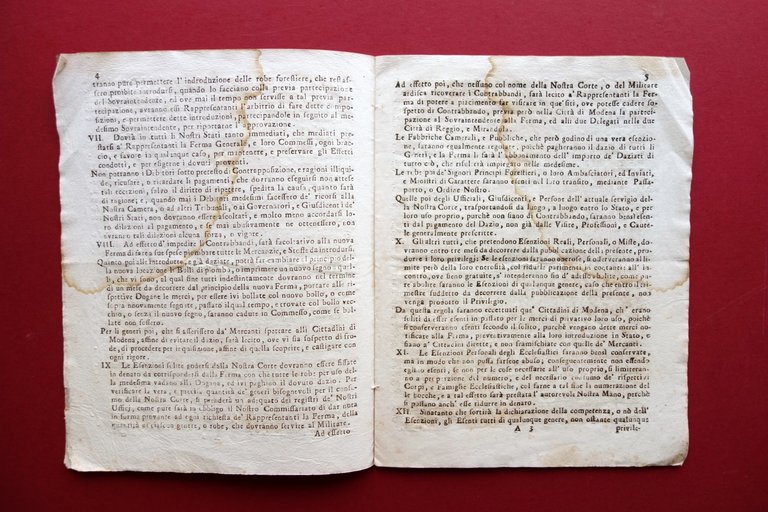 4
tranno pure permettere l' indroduzione delle robe forestiere, che restas-
sero proibite introdursi, quando lo facciano colla previa partecipazione
del Sovraintendente, ed ove mai il tempo non servisse a tal previa par-
tecipazione, avranno essi Rappresentanti l'arbitrio di fare dette compo-
zioni, e permettere dette introduzioni partecipandole in seguito al me-
desimo Sovraintendente, per riportarne l' approvazione.
VII. Dovrà in tutti li Nostri Stati tanto immediati, che mediati pre-
starsi a' Rappresentanti la Ferma Generale, e loro Commessi, ogni brac-
cio, e favore in qualunque caso, per mantenere, e preservare gli Effetti
condotti, e per esigere i dovuti proventi.
Non potranno i Debitori sotto pretesto di Contrapposizione, e ragioni illiqui-
de, ricusare, o ritardare li pagamenti, che dovranno eseguirsi non attese
tali eccezioni, salvo il diritto di ripetere, spedita la causa, quanto sarà
di ragione; e quando mai i Debitori medesimi facessero de' ricorsi alla
Nostra Camera, o ad altri Tribunali, o ai Governatori, e Giusdicenti de'
Nostri Stati, non dovranno essere ascoltati, e molto meno accordarsi lo-
ro dilazioni al pagamento, e se mai abusivamente ne ottenessero, non
avranno tali dilazioni alcuna forza, o vigore.
VIII. Ad effetto d' impedire li Contrabbandi, sarà facoltativo alla nuova
Ferma di fare a sue spese piombare tutte le Mercanzie, e Stoffe da introdursi.
Quanto poi alle introdotte, e già daziate, potrà far cambiare il principio del-
la nuova locazione li Bolli di piombo, o imprimere un nuovo segno a quel-
li, che vi sono, al qual fine tutti indestintamente dovranno nel termine
di un mese da decorrere dal principio della nuova Ferma, portare alle ri-
spettive Dogane le merci, per essere ivi bollate col nuovo bollo, o come
sopra nuovamente segnate, passato il qual tempo, e trovate col bollo vec-
chio, o senza il nuovo segno, saranno cadute in Commesso, come se bol-
late non fossero.
Per li generi poi, che si asserissero da' Mercanti spettare alli Cittadini di
Modena, affine di evitare il dazio, sarà lecito, ove vi sia sospetto di fro-
de, di procedere per inquisizione, affine della scoprire, e castigare con
ogni rigore.
IX. Le Esenzioni solite godersi dalla Nostra Corte dovranno essere fissate
in denaro da corrispondersi dalla Ferma con che tutte le robe per uso del-
la medesima vadano alla Dogana, ed ivi paghino il dovuto dazio. Per
verificare la vera, e precisa quantità de' generi bisognevoli per il consu-
mo della Nostra Corte, si prenderà un adequato dei registri de' Nostri
Ufficj, come pure sarà in obbligo il Nostro Commissariato di dar nota
in forma provante ad ogni richiesta de' Rappresentanti la Ferma, della
quantità di grascine, o robe, che dovranno servire al Militare.
Ad effetto
5
Ad effetto poi, che nessuno col nome della Nostra Corte, o del Militare
ardisca ricoverare i Contrabbandi, sarà lecito a' Rappresentanti la Fer-
ma di potere a piacimento far visitare in que' siti, ove potesse cadere so-
spetto di Contrabbando, previa però nella Città di Modena la parteci-
pazione al Sovraintendente alla Ferma, ed alli due Delegati nelle due
Città di Reggio, e Mirandola.
Le Fabbriche Camerali, e Pubbliche, che però godino di una vera esenzio-
ne, saranno egualmente rispettate, poichè pagheranno il dazio di tutti li
Generi, e la Ferma li farà l'abbonamento dell' importo de' Daziati di
tutto ciò, che resterà impiegato nelle medesime.
Le robe proprie de' Signori Principi Forestieri, o loro Ambasciatori, ed Inviati,
e Ministri di Carattere saranno esenti nel loro transito, mediante Passa-
porto, o Ordine Nostro.
Quelle poi degli Uffiziali, Giusdicenti, e Persone dell' attuale servigio del-
la Nostra Corte, trasportandosi da luogo, a luogo entro lo Stato, e per
loro uso proprio, purchè non siano di Contrabbando, saranno bensì esen-
ti dal pagamento del Dazio, non già dalle Visite, Profession, e Caute-
le generalmente prescritte.
X. Gli altri tutti, che pretendono Esenzioni Reali, Personali, o Miste, do-
vranno entro tre mesi da decorrere dalla pubblicazione della presente, pro-
durre i loro privilegj; Se le esenzioni saranno onerose, si osserveranno al li-
mite però della loro entrosità, col ridurli parimenti in contanti: all' in-
contro, ove sieno gratuite, s' intenderanno sin d'adesso abolite, come pu-
re abolite saranno le Esenzioni di qualunque genere, caso che entro il tre-
mestre suddetto da decorrere dalla pubblicazione della presente, non
venga prodotto il Privilegio.
Da questa regola saranno eccettuati que' Cittadini di Modena, ch' era-
no soliti da esser esenti in passato per le merci di privativo loro uso, poichè
si conserveranno esenti secondo il solito, purchè vengano dette merci no-
tificate alla Ferma, preventivamente alla loro introduzione in Stato, e
siano a' Cittadini dirette, e non frammischiate con quelle de' Mercanti.
XI. Le Esenzioni Personali degli Ecclesiastici saranno bensì conservate,
ma in modo che non possa farsene abuso, conseguentemente non essendo
egli esenti, se non per le cose necessarie all' uso proprio, si limiteran-
no a proporzione del numero, e del necessario consumo de' rispettivi
Corpi, e Famiglie Ecclesiastiche, col farne a tal fine la numerazione del-
le bocche, e a tal effetto sarà prestata l' autorevole Nostra Mano, perchè
si possano anch' esse ridurre in denaro.
XII. Sinatanto che sortirà la dichiarazione della competenza, o nò dell'
Esenzioni, gli Esenti tutti di qualunque genere, non ostante qualunque
A 3
privile-